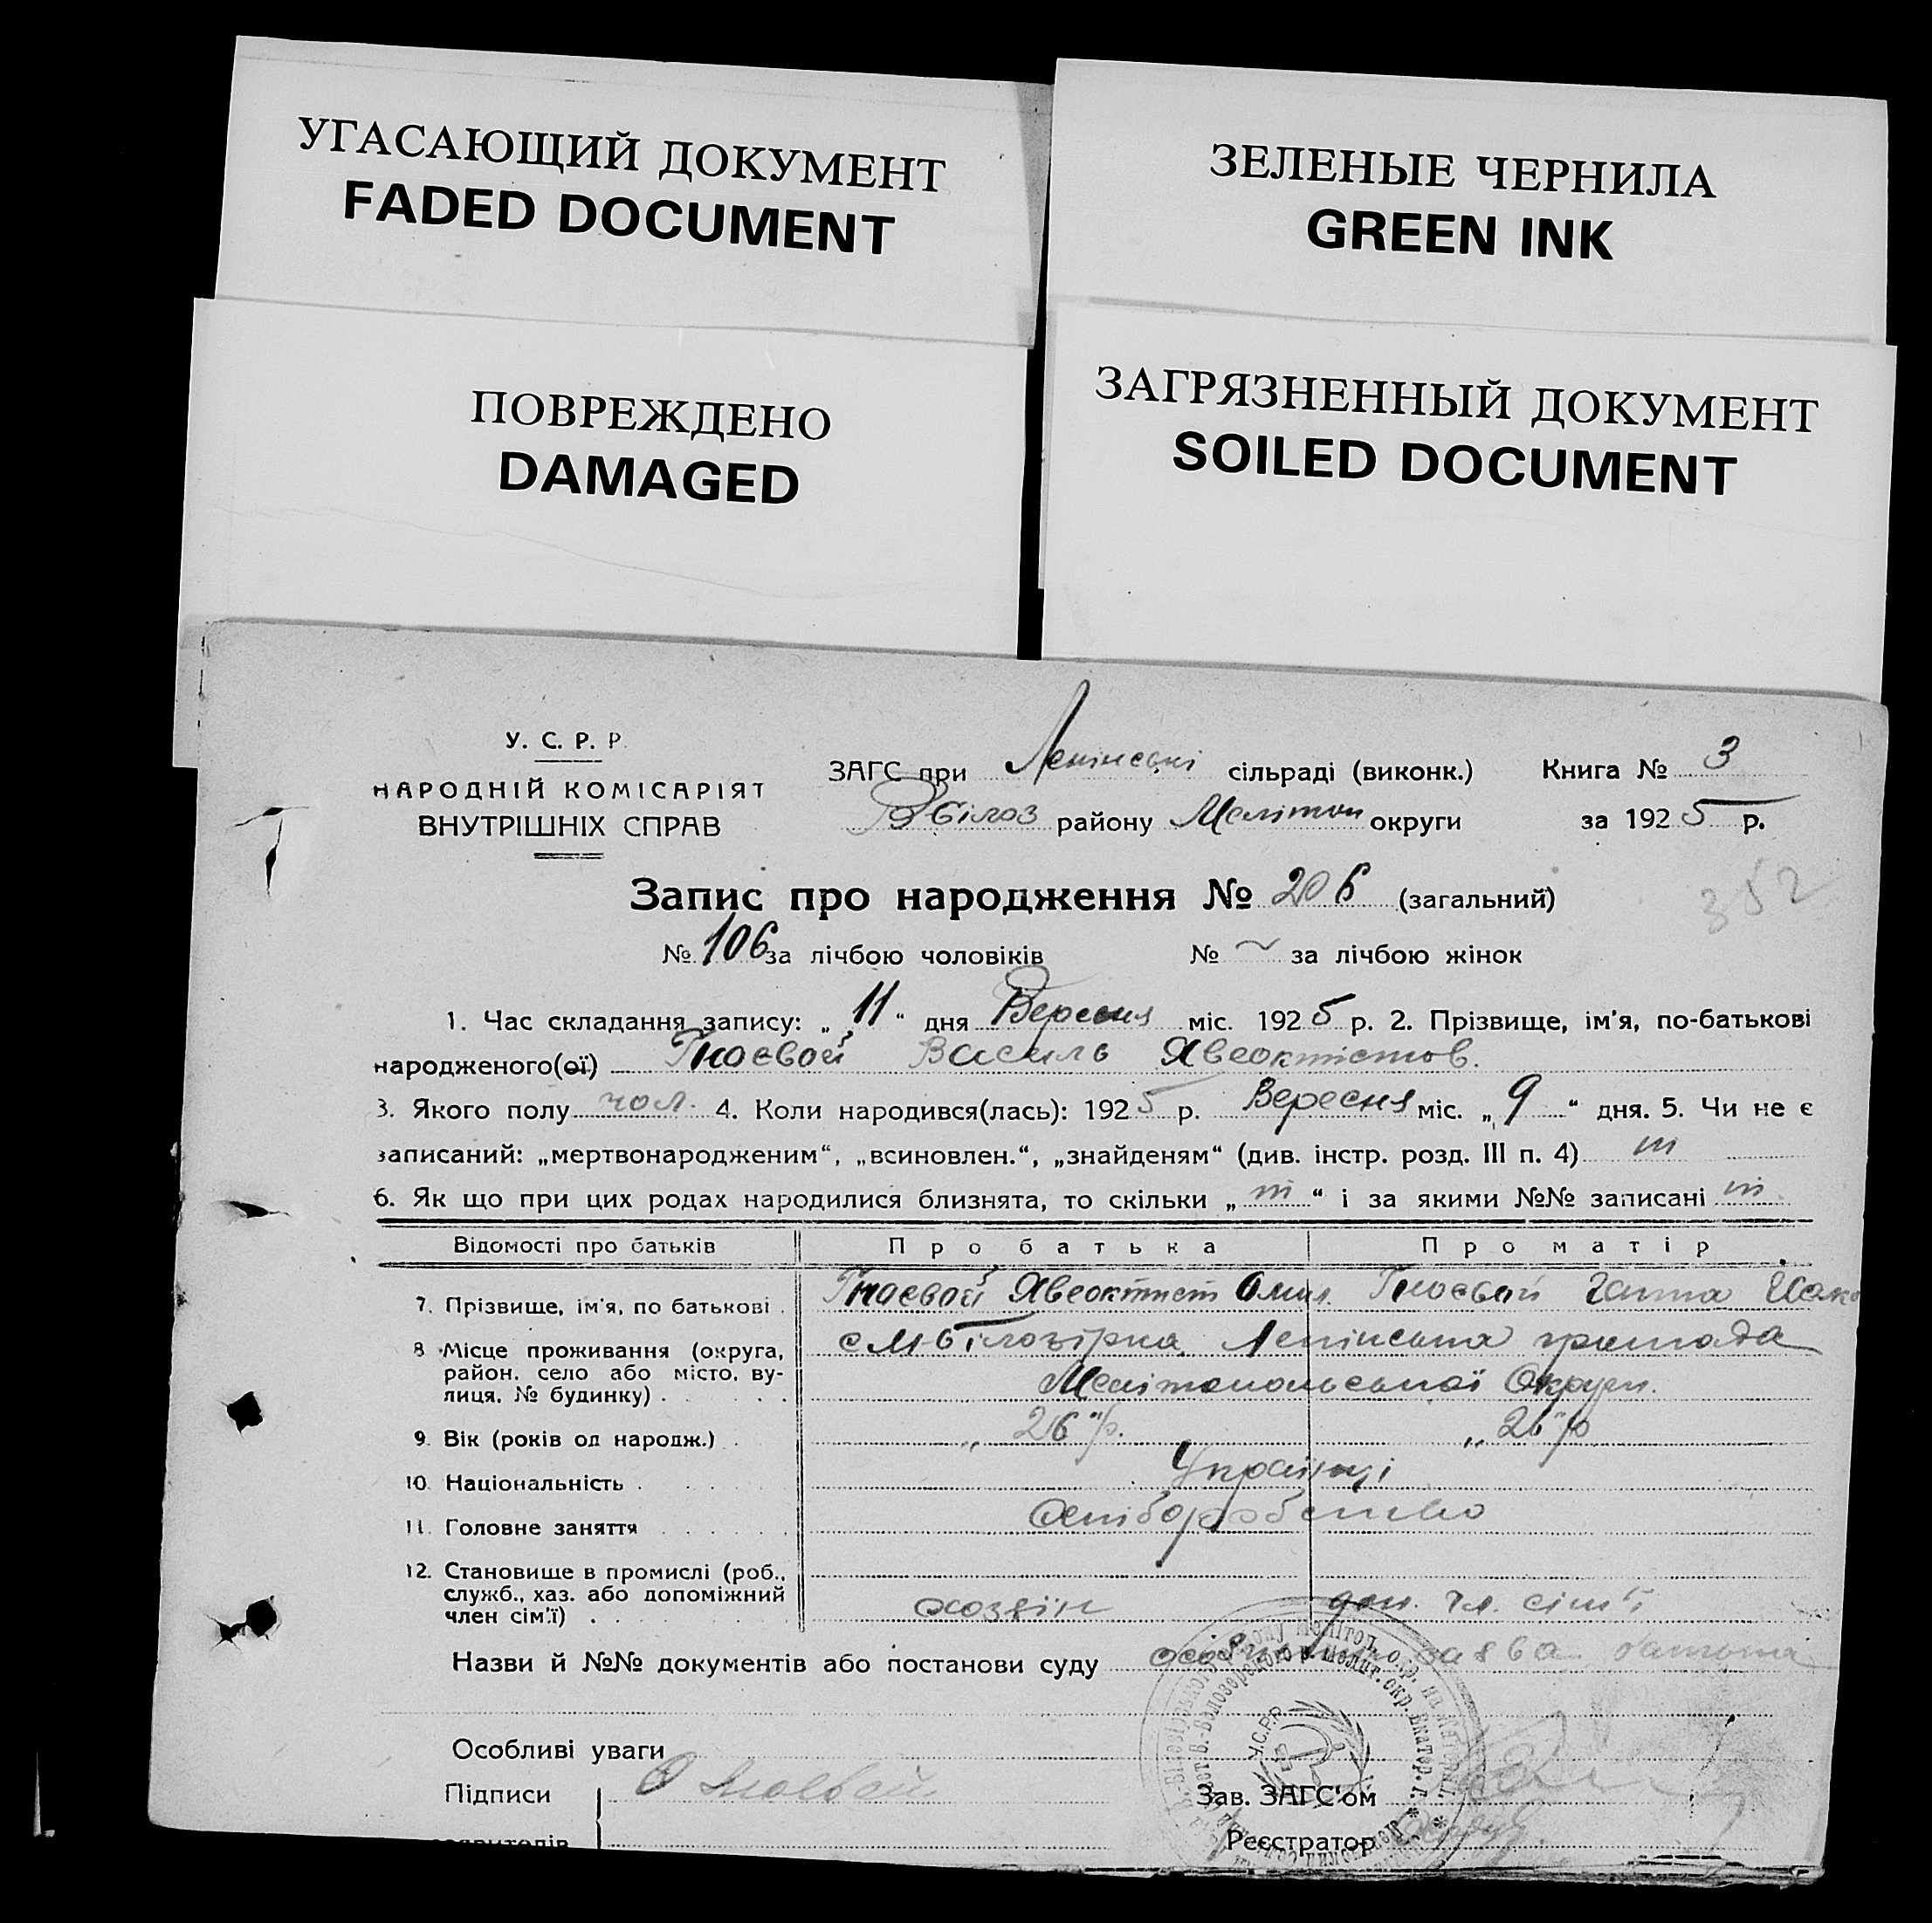 УГАСАЮЩИЙ ДОКУМЕНТ
FADED DOCUMENT
ЗЕЛЕНЫЕ ЧЕРНИЛА
GREEN INK
ПОВРЕЖДЕНО
DAMAGED
ЗАГРЯЗНЕННЫЙ ДОКУМЕНТ
SOILED DOCUMENT
У. С. Р. Р.
НАРОДНІЙ КОМІСАРІЯТ
ВНУТРІШНІХ СПРАВ
ЗАГС при Ленінські сільраді (виконк.) Книга № 3
району Меліտոп округи за 1925 р.
Запис про народження № 206 (загальний)
352
№ 106 за лічбою чоловіків № ~ за лічбою жінок
1. Час складання запису: „11“ дня Вересня міс. 1925 р. 2. Прізвище, ім'я, по-батькові
народженого(ої) Гноєвой Василь Явеоктістов.
3. Якого полу чол. 4. Коли народився(лась): 1925 р. Вересня міс. „9“ дня. 5. Чи не є
записаний: „мертвонародженим“, „всиновлен.“, „знайденям“ (див. інстр. розд. III п. 4)
6. Як що при цих родах народилися близнята, то скільки „ “ і за якими №№ записані
Відомості про батьків Про батька Про матір
7. Прізвище, ім'я, по батькові Гноєвой Явеоктист Гноєвой Ганна
8 Місце проживання (округа, Ленінська громада
район, село або місто, ву-
лиця, № будинку) Мелітопольської Округи.
9. Вік (років од народж.) „26“ р. „26“ р
10. Національність Українці
11. Головне заняття
12. Становище в промислі (роб.,
служб., хаз. або допоміжний
член сім'ї) хозяїн доп. чл. сім'ї
Назви й №№ документів або постанови суду заява батька
Особливі уваги
У.С.Р.Р.
Підписи Гноєвой Зав. ЗАГС'ом
Реєстратор